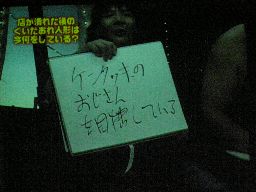 店が潰れた後の
くいだおれ人形は
今何をしている?
ケンタッキの
おじさん
を目指している